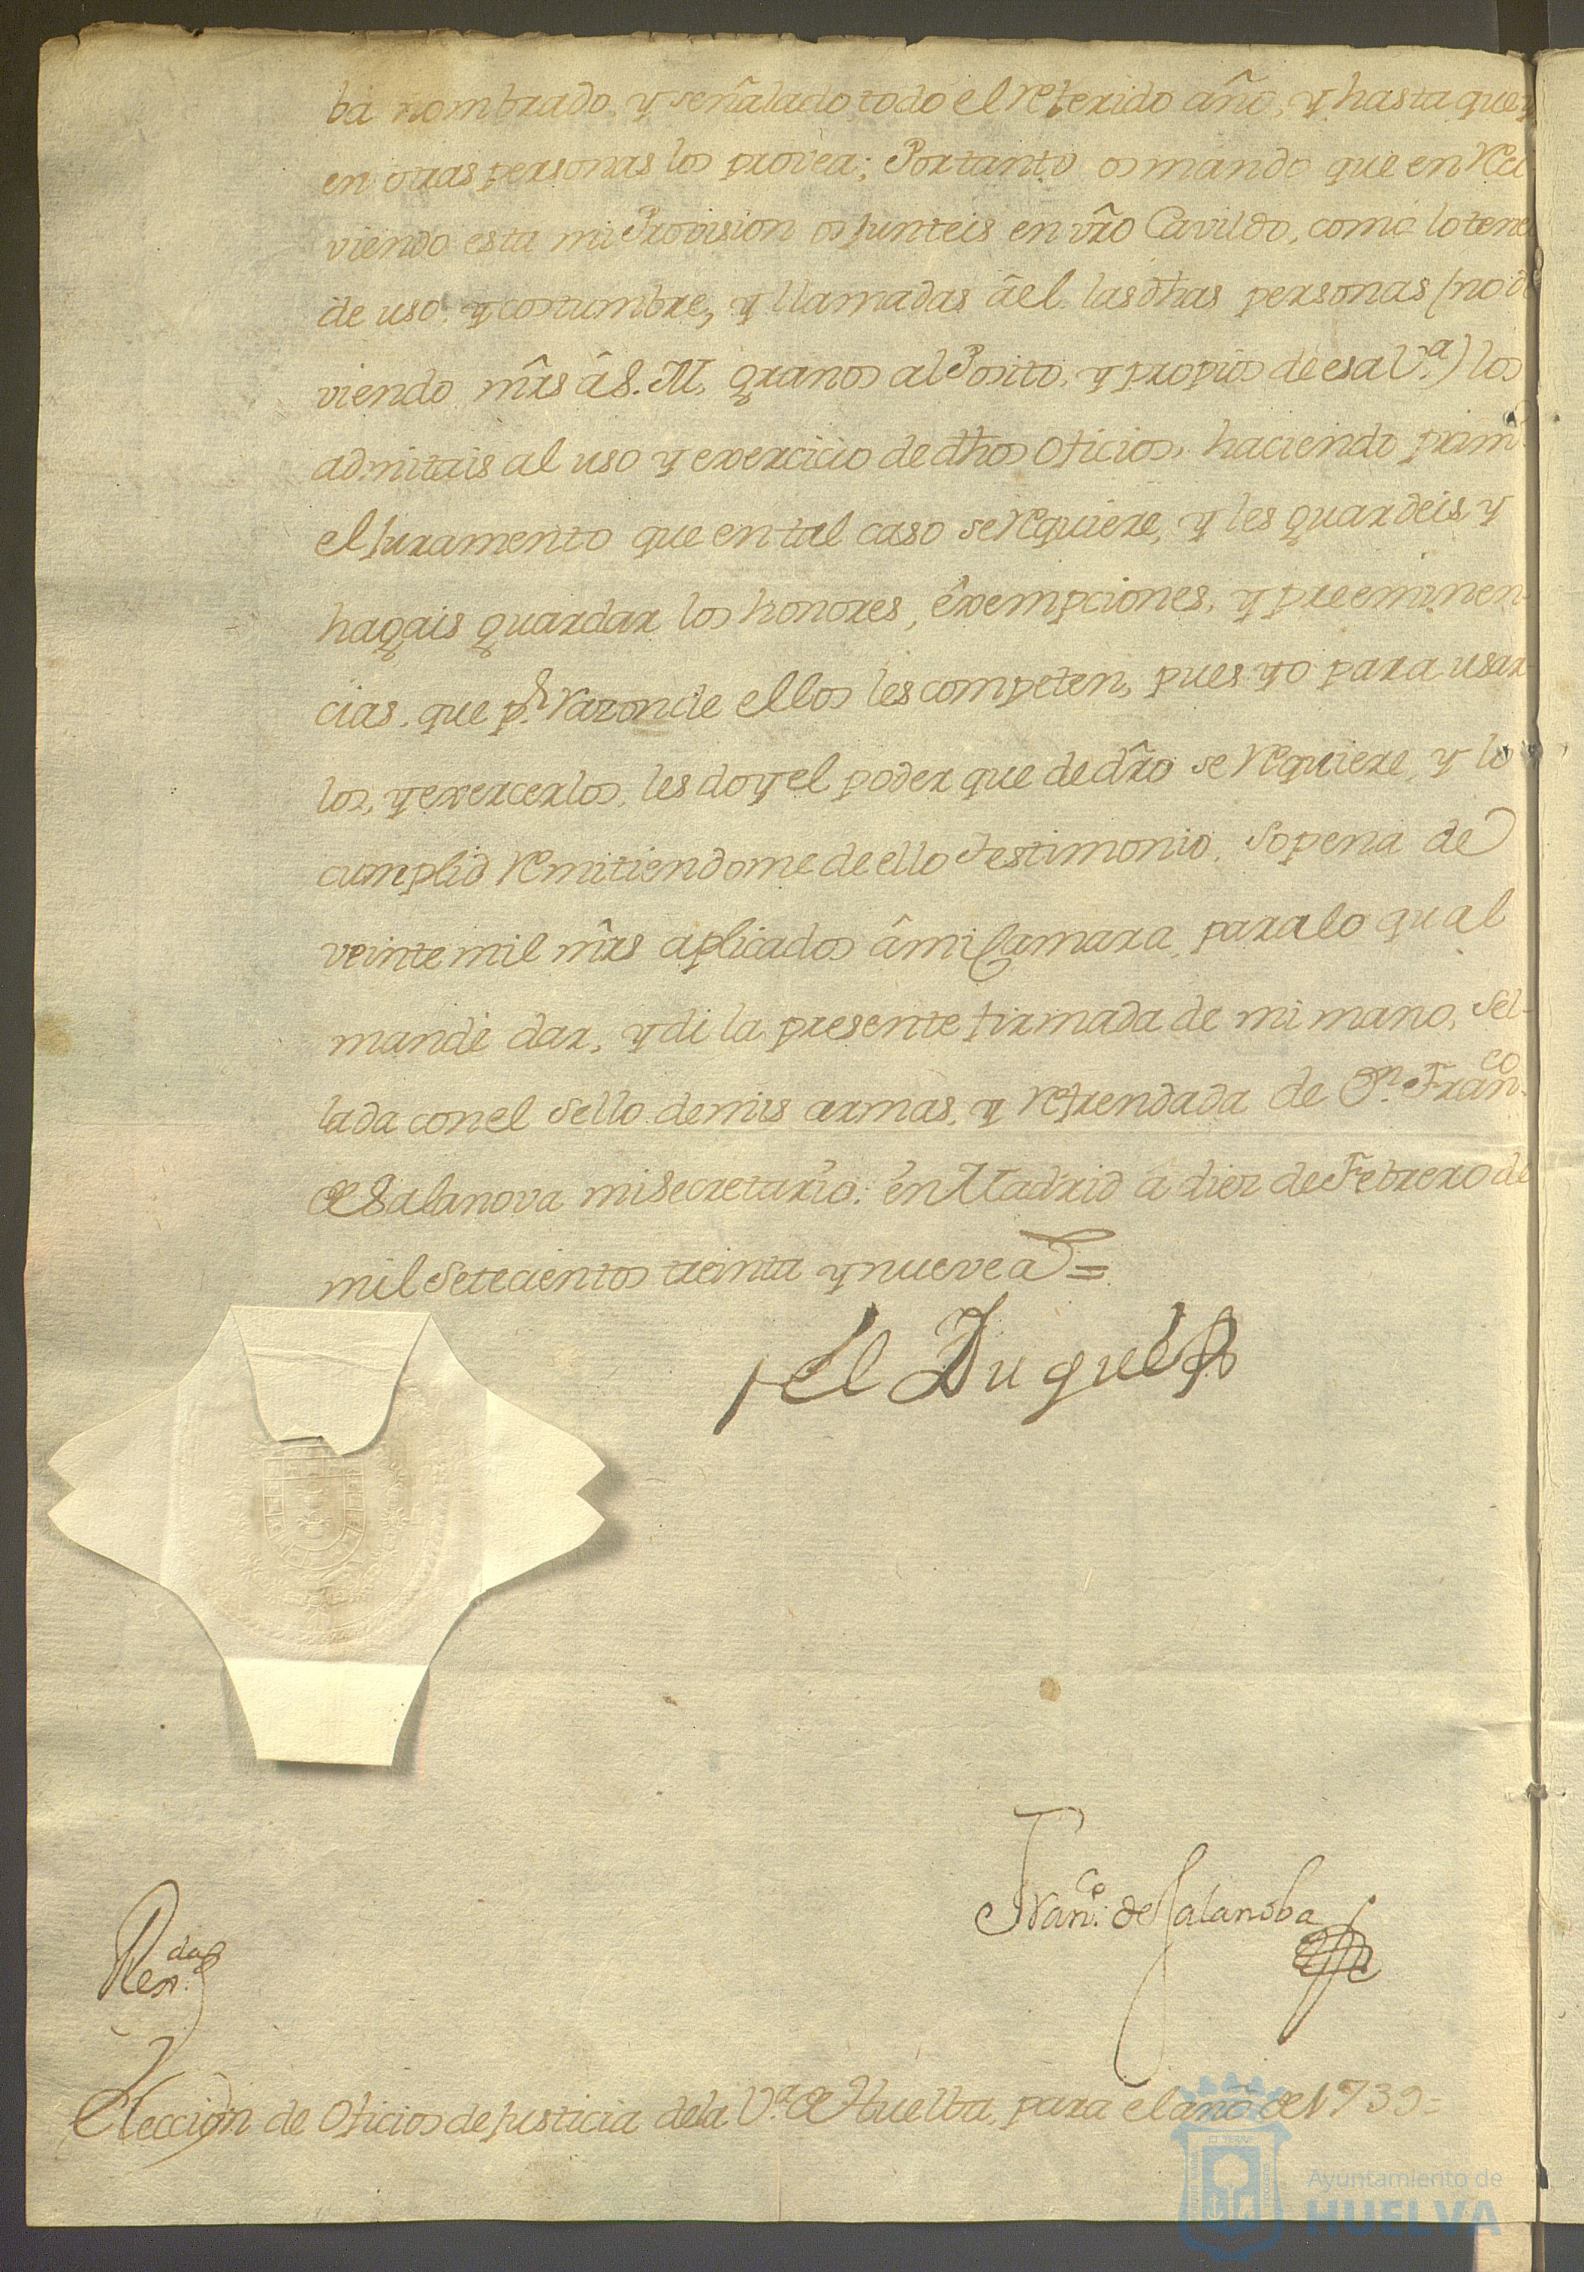 ba nombrado, y señalado todo el referido año, y hasta que
en otras personas los provea; Portanto os mando que en Reci
viendo esta mi Provision os junteis en vr̃o Cavildo, como lo tene
de uso, y costumbre, y llamadas âel las dhas personas (no de
viendo mr̃s â S. M. granos al Posito, y propios de esa V.ª) los
admitais al uso y exercicio de dhos Oficios, haciendo prim
el Juramento que en tal caso se Requiere, y les guardeis, y
hagais guardar los honores, êxempciones, y preeminen
cias, que p.r Razon de ellos les competen, pues yo para usar
los, y exercerlos, les doy el poder que de dr̃o se Requiere, y lo
cumplid Remitiendome de ello Testimonio, Sopena de
veinte mil mr̃s aplicados âmi Camara, para lo qual
mandé dar, y di la presente firmada de mi mano, Sel-
lada con el Sello de mis armas, y Refrendada de D.n Fran.co
de Salanova mi Secretario: en Madrid a diez de Febrero de
mil Setecientos treinta y nueve a =
el Duque
Fran.co de Salanoba
Ren.das
Eleccion de Oficios de Justicia de la V.ª de Huelba, para el año de 1739=
Ayuntamiento de
HUELVA